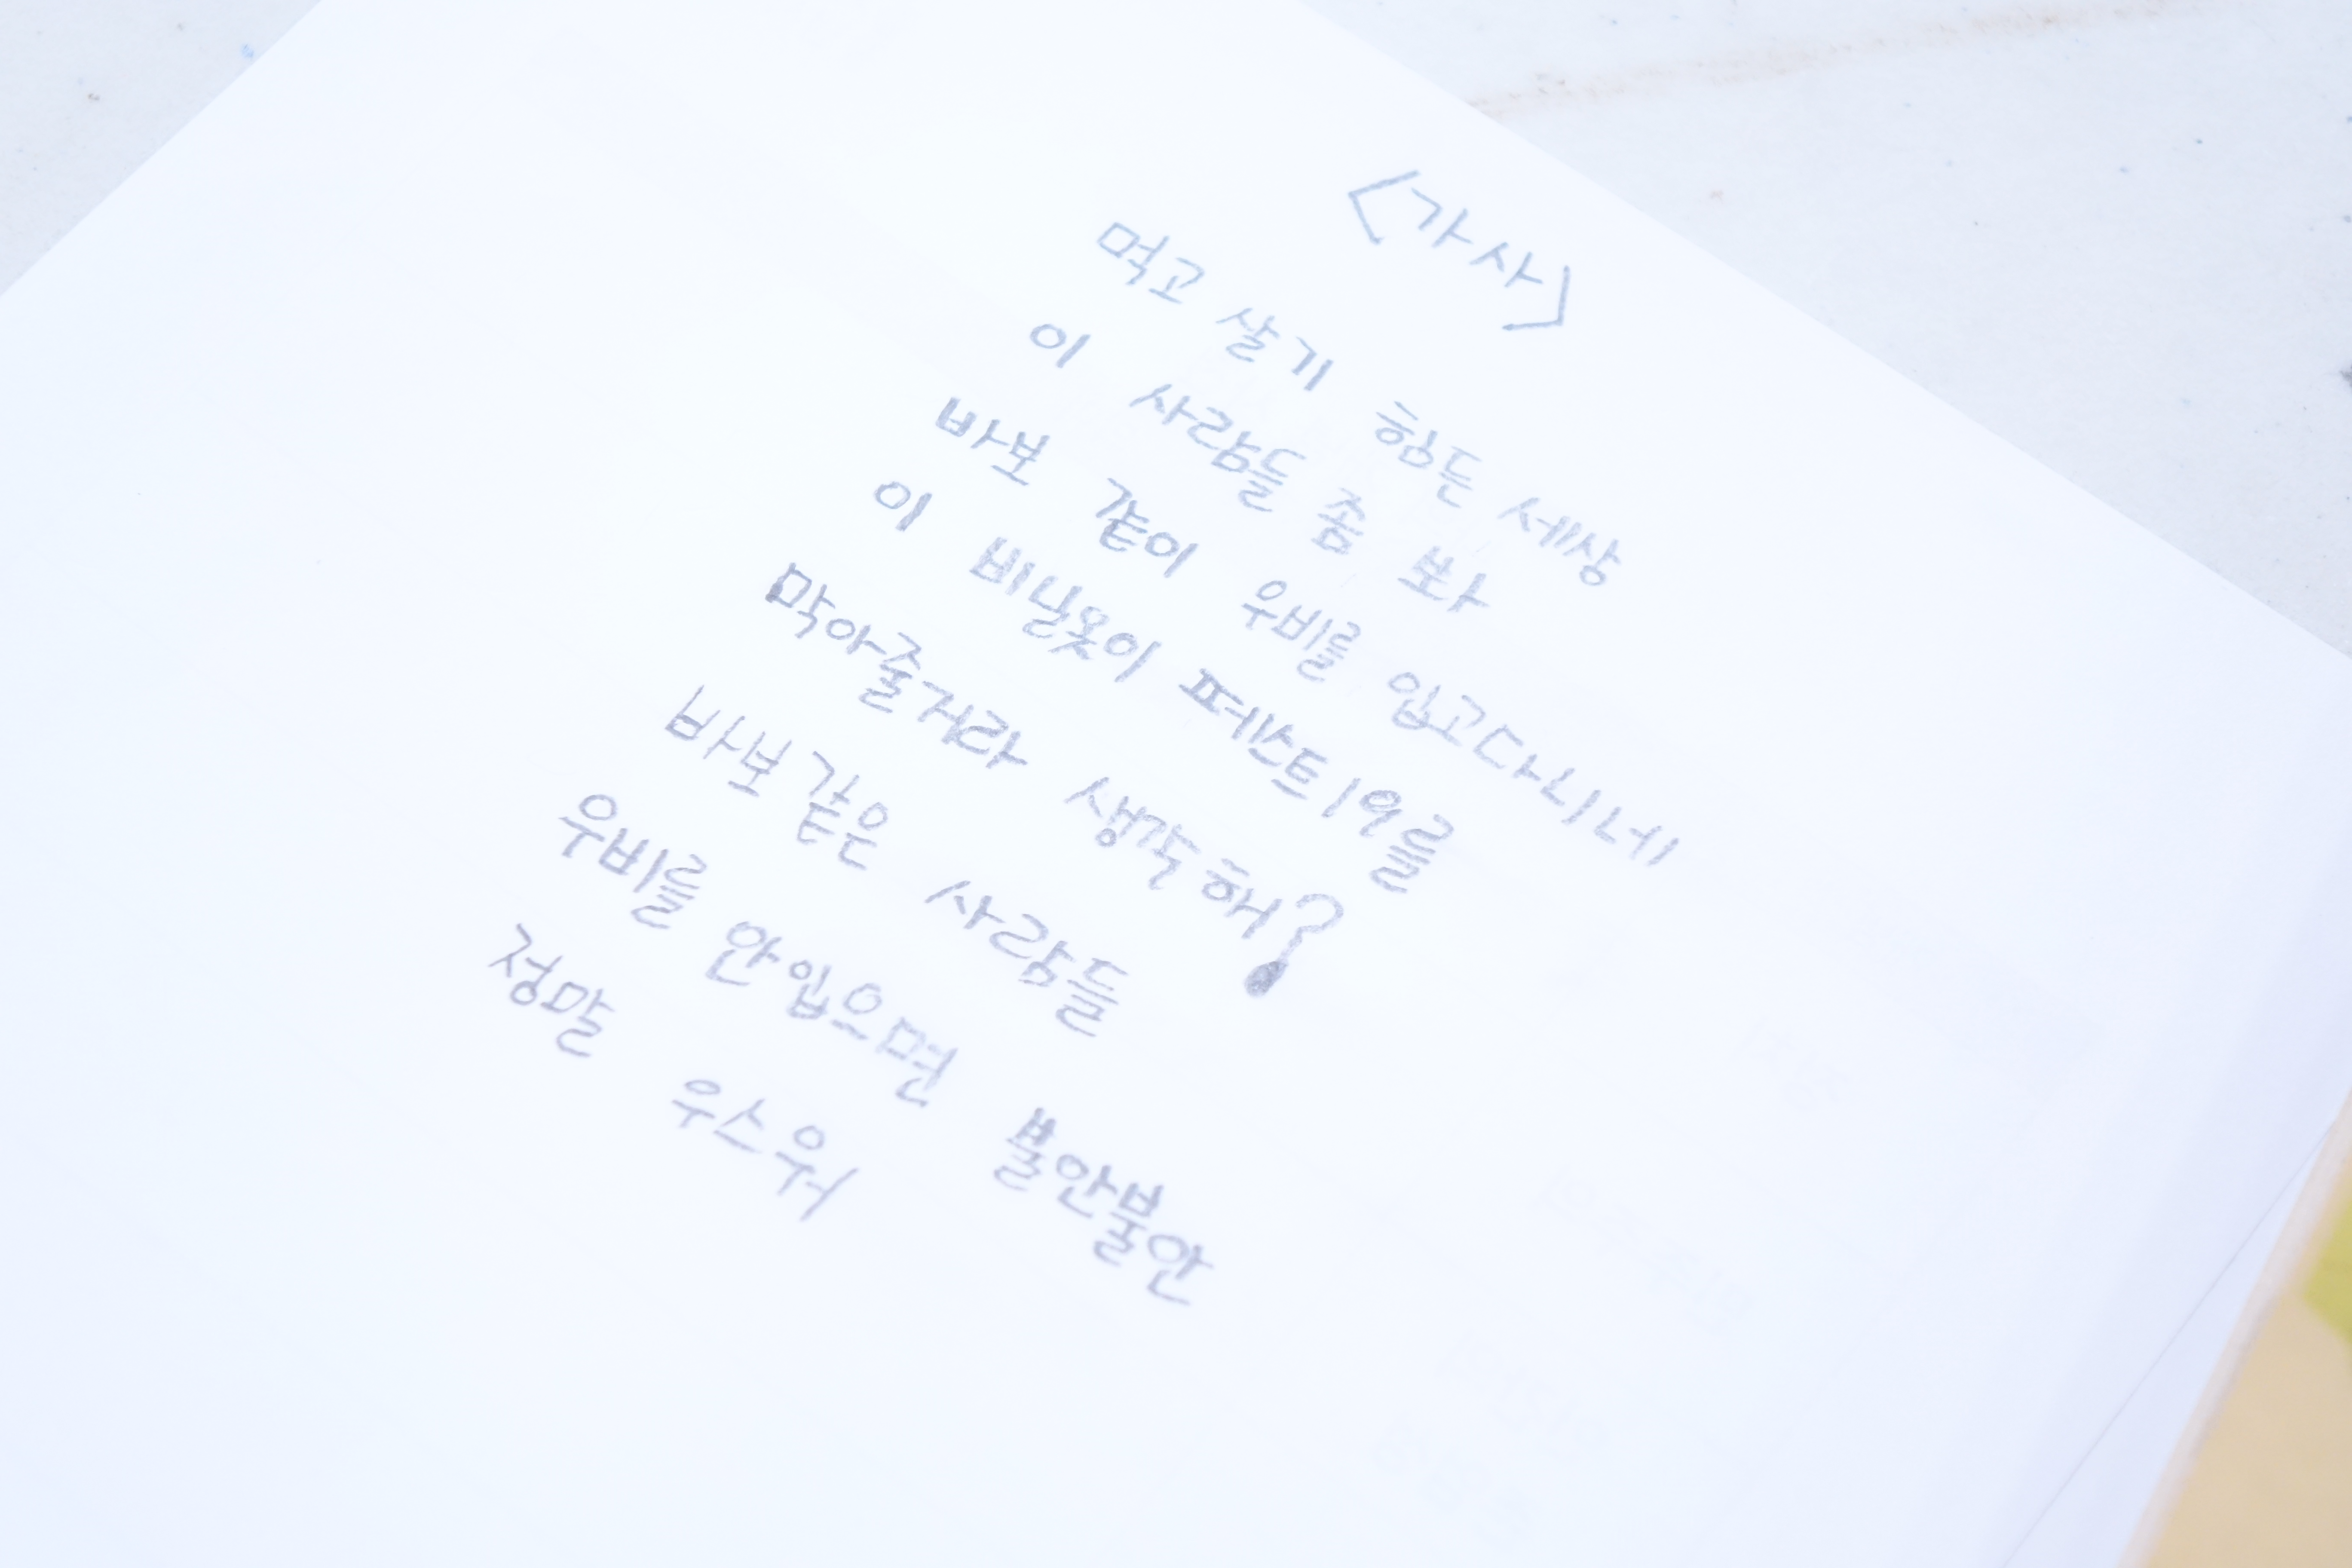 <가사>
먹고 살기 힘든 세상
이 사람들 좀 봐
바보 같이 우비를 입고다니네
이 비닐옷이 페스트1억을
막아줄거라 생각해?
바보같은 사람들
우비를 안입으면 불안불안
정말 우스워